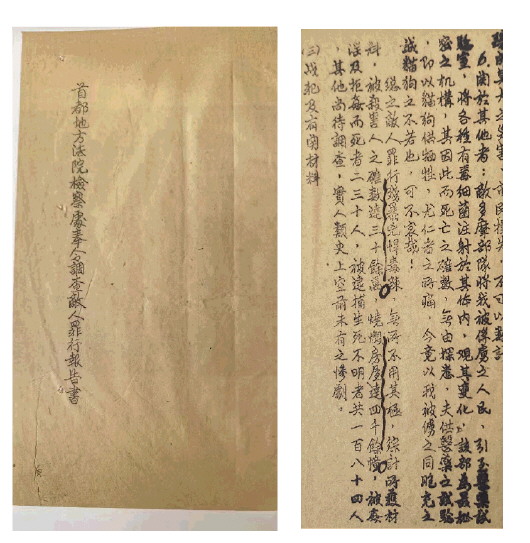 首都地方法院檢察處奉令調查敵人罪行報告書
不可以數計
6.關於其他者:敵多摩部隊將我被俘虜之人民,引至醫藥試
驗室,將各種有毒細菌注射於其體內,觀其變化,該部為最秘
密之机構,其因此而死亡之確數,無由探悉,夫供醫藥之試驗
,即以貓狗供犧牲,尤仁者之所痛,今竟以我被俘之同胞充之
誠貓狗之不若也,可不哀哉!
總之敵人罪行殘暴兇悍毒辣,無所不用其極,綜計所獲材
料,被殺害人之確數達三十餘萬,燒燬房屋達四千餘幢,被姦
淫及拒姦而死者二三十人,被逮捕生死不明者共一百八十四人
,其他尚待調查,實人類史上空前未有之慘劇。
(三)戰犯及有關材料